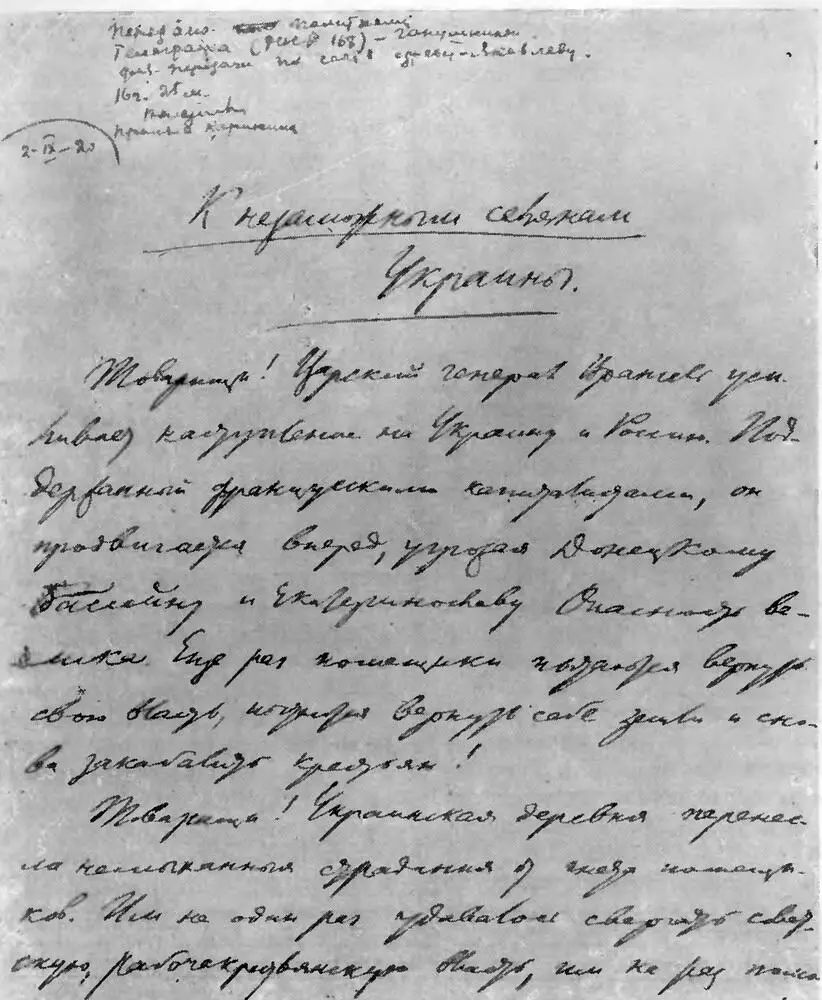 Передано
Телеграфа (РОСТ 168) –
для передачи по
16 ч. 25 м.
2-IX-20
К незаможным селянам
Украины.
Товарищи! Царский генерал Врангель уси-
ливает наступление на Украину и Россию. Под-
держанный французскими капиталистами, он
продвигается вперед, угрожая Донецкому
бассейну и Екатеринославу Опасность ве-
лика. Еще раз помещики пытаются вернуть
свою власть, пытаются вернуть себе земли и сно-
ва закабалить крестьян!
Товарищи! Украинская деревня перенес-
ла неслыханныя страдания от гнета помещи-
ков. Им не один раз удавалось свергать совет-
скую, рабочекрестьянскую власть, им не раз помо